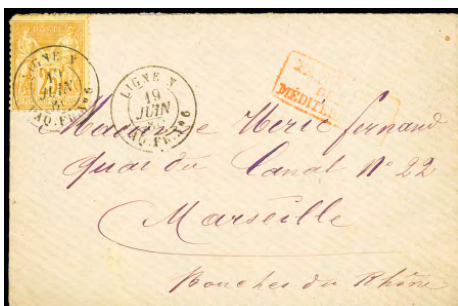 POSTE
25
LIGNE X
19
JUIN
PAQ. FR. N° 6
LIGNE X
19
JUIN
PAQ. FR. N° 6
MÉDIT
Madame Merie fernand
Quai du Canal N° 22
Marseille
Bouches du Rhône